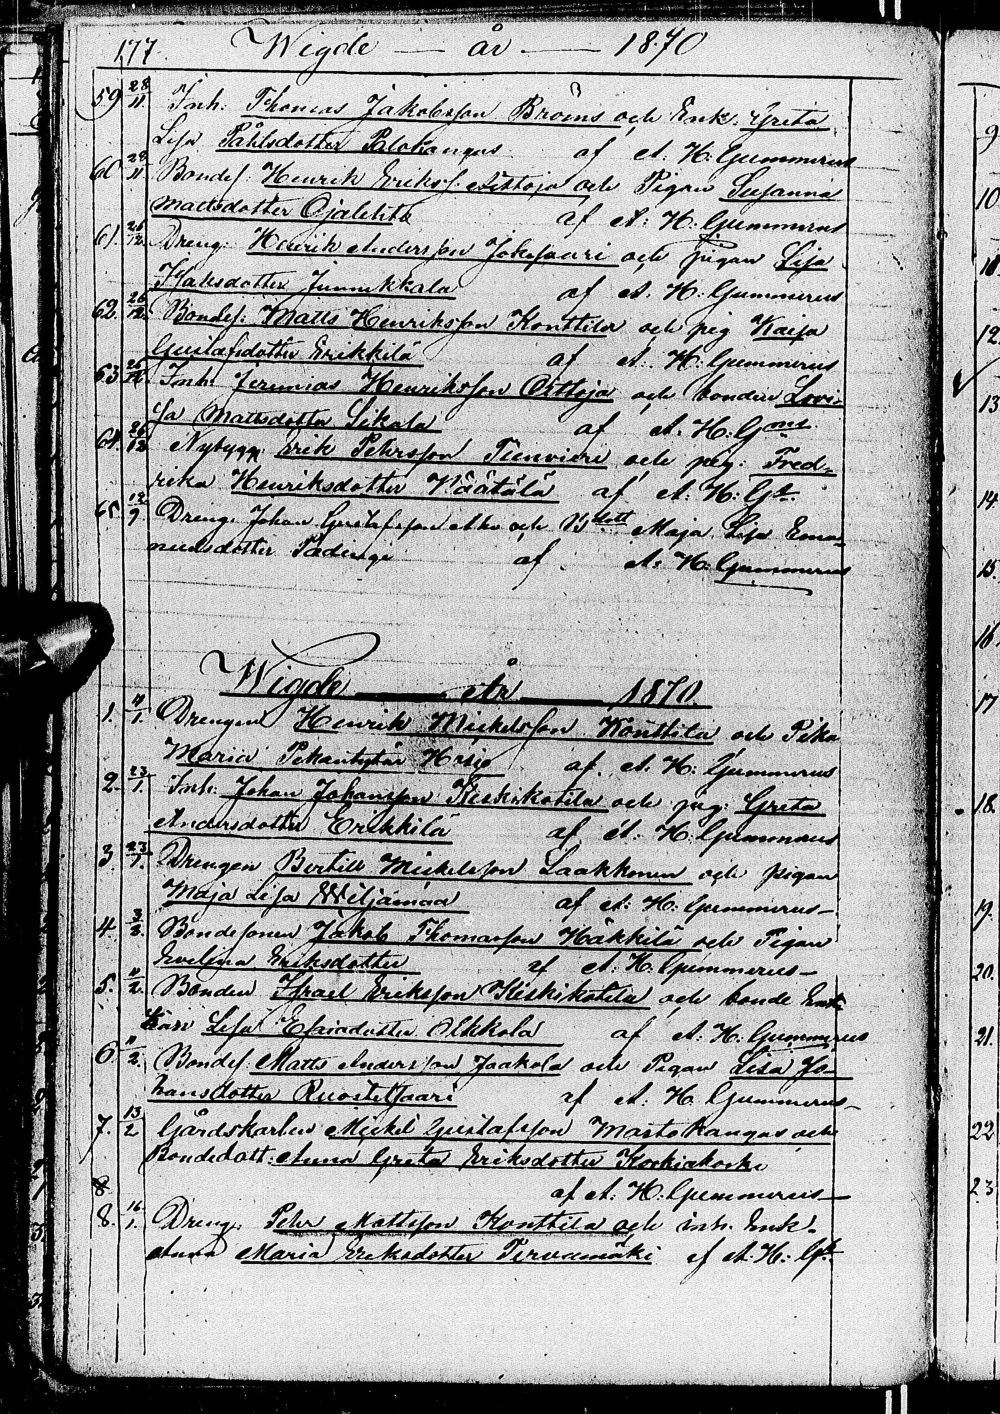 177. Wigde — år — 1870
59 28/11 Inh: Thomas Jakobsson Broms och Enk. Greta
Lisa Påhlsdotter Palokangas af A: H: Gummerus
60 28/11 Bondes. Henrik Erikss. och Pigan Susanna
Mattsdotter Ojalehto af A: H: Gummerus
61. 26/12. Dreng: Henrik Andersson Jokisaari och pigan Lisa
Isaksdotter Junnikkala af A. H: Gummerus
62. 26/12. Bondes: Matts Henriksson Konttila och pig Kaisa
Gustafsdotter Erikkilä af A: H: Gummerus
63 26/12 Inh. Jeremias Henriksson och bonden Lovi-
sa Mattsdotter Sikala af A: H: G
64. 26/12 Nybygg: Erik Pehrsson och pig: Fred-
rika Henriksdotter Väätälä af A: H: G
65 12/9 Dreng. Johan Gustafsson Aho och Maja Lisa Ema-
nuelsdotter Tådinge af A: H: Gummerus
Wigde — År — 1870.
1. 4/1. Drengen Henrik Mickelsson Konttila och Pika
Maria af. A. H: Gummerus
2. 23/1. Inh: Johan Johansson Keskikotila och pig: Greta
Andersdotter Erikkilä af A. H: Gummerus
3. 23/1. Drengen Bertill Mickelsson Laakkonen och pigan
Maja Lisa Wiljamaa af A: H. Gummerus—
4. 3/2. Bondesonen Jakob Thomasson Häkkilä och Pigan
Evelina Eriksdotter af A: H. Gummerus—
5. 11/2. Bonden Israel Eriksson Keskikotila och bonde Enk
Lisa Esaiadotter Alkkola af A: H. Gummerus
6 11/2. Bondes: Matts Andersson Jaakola och Pigan Lisa Jo-
hansdotter Ruostetsaari af A: H. Gummerus—
7. 13/2 Gårdskarlen Mickel Gustafsson Mastokangas och
Bondedott: Anna Greta Eriksdotter Koskiakoski
8 af A: H: Gummerus—
8. 16/1. Dreng. Pehr Mattsson Konttila och inh. Enk.
Anna Maria Eriksdotter Tervamäki af A. H: G